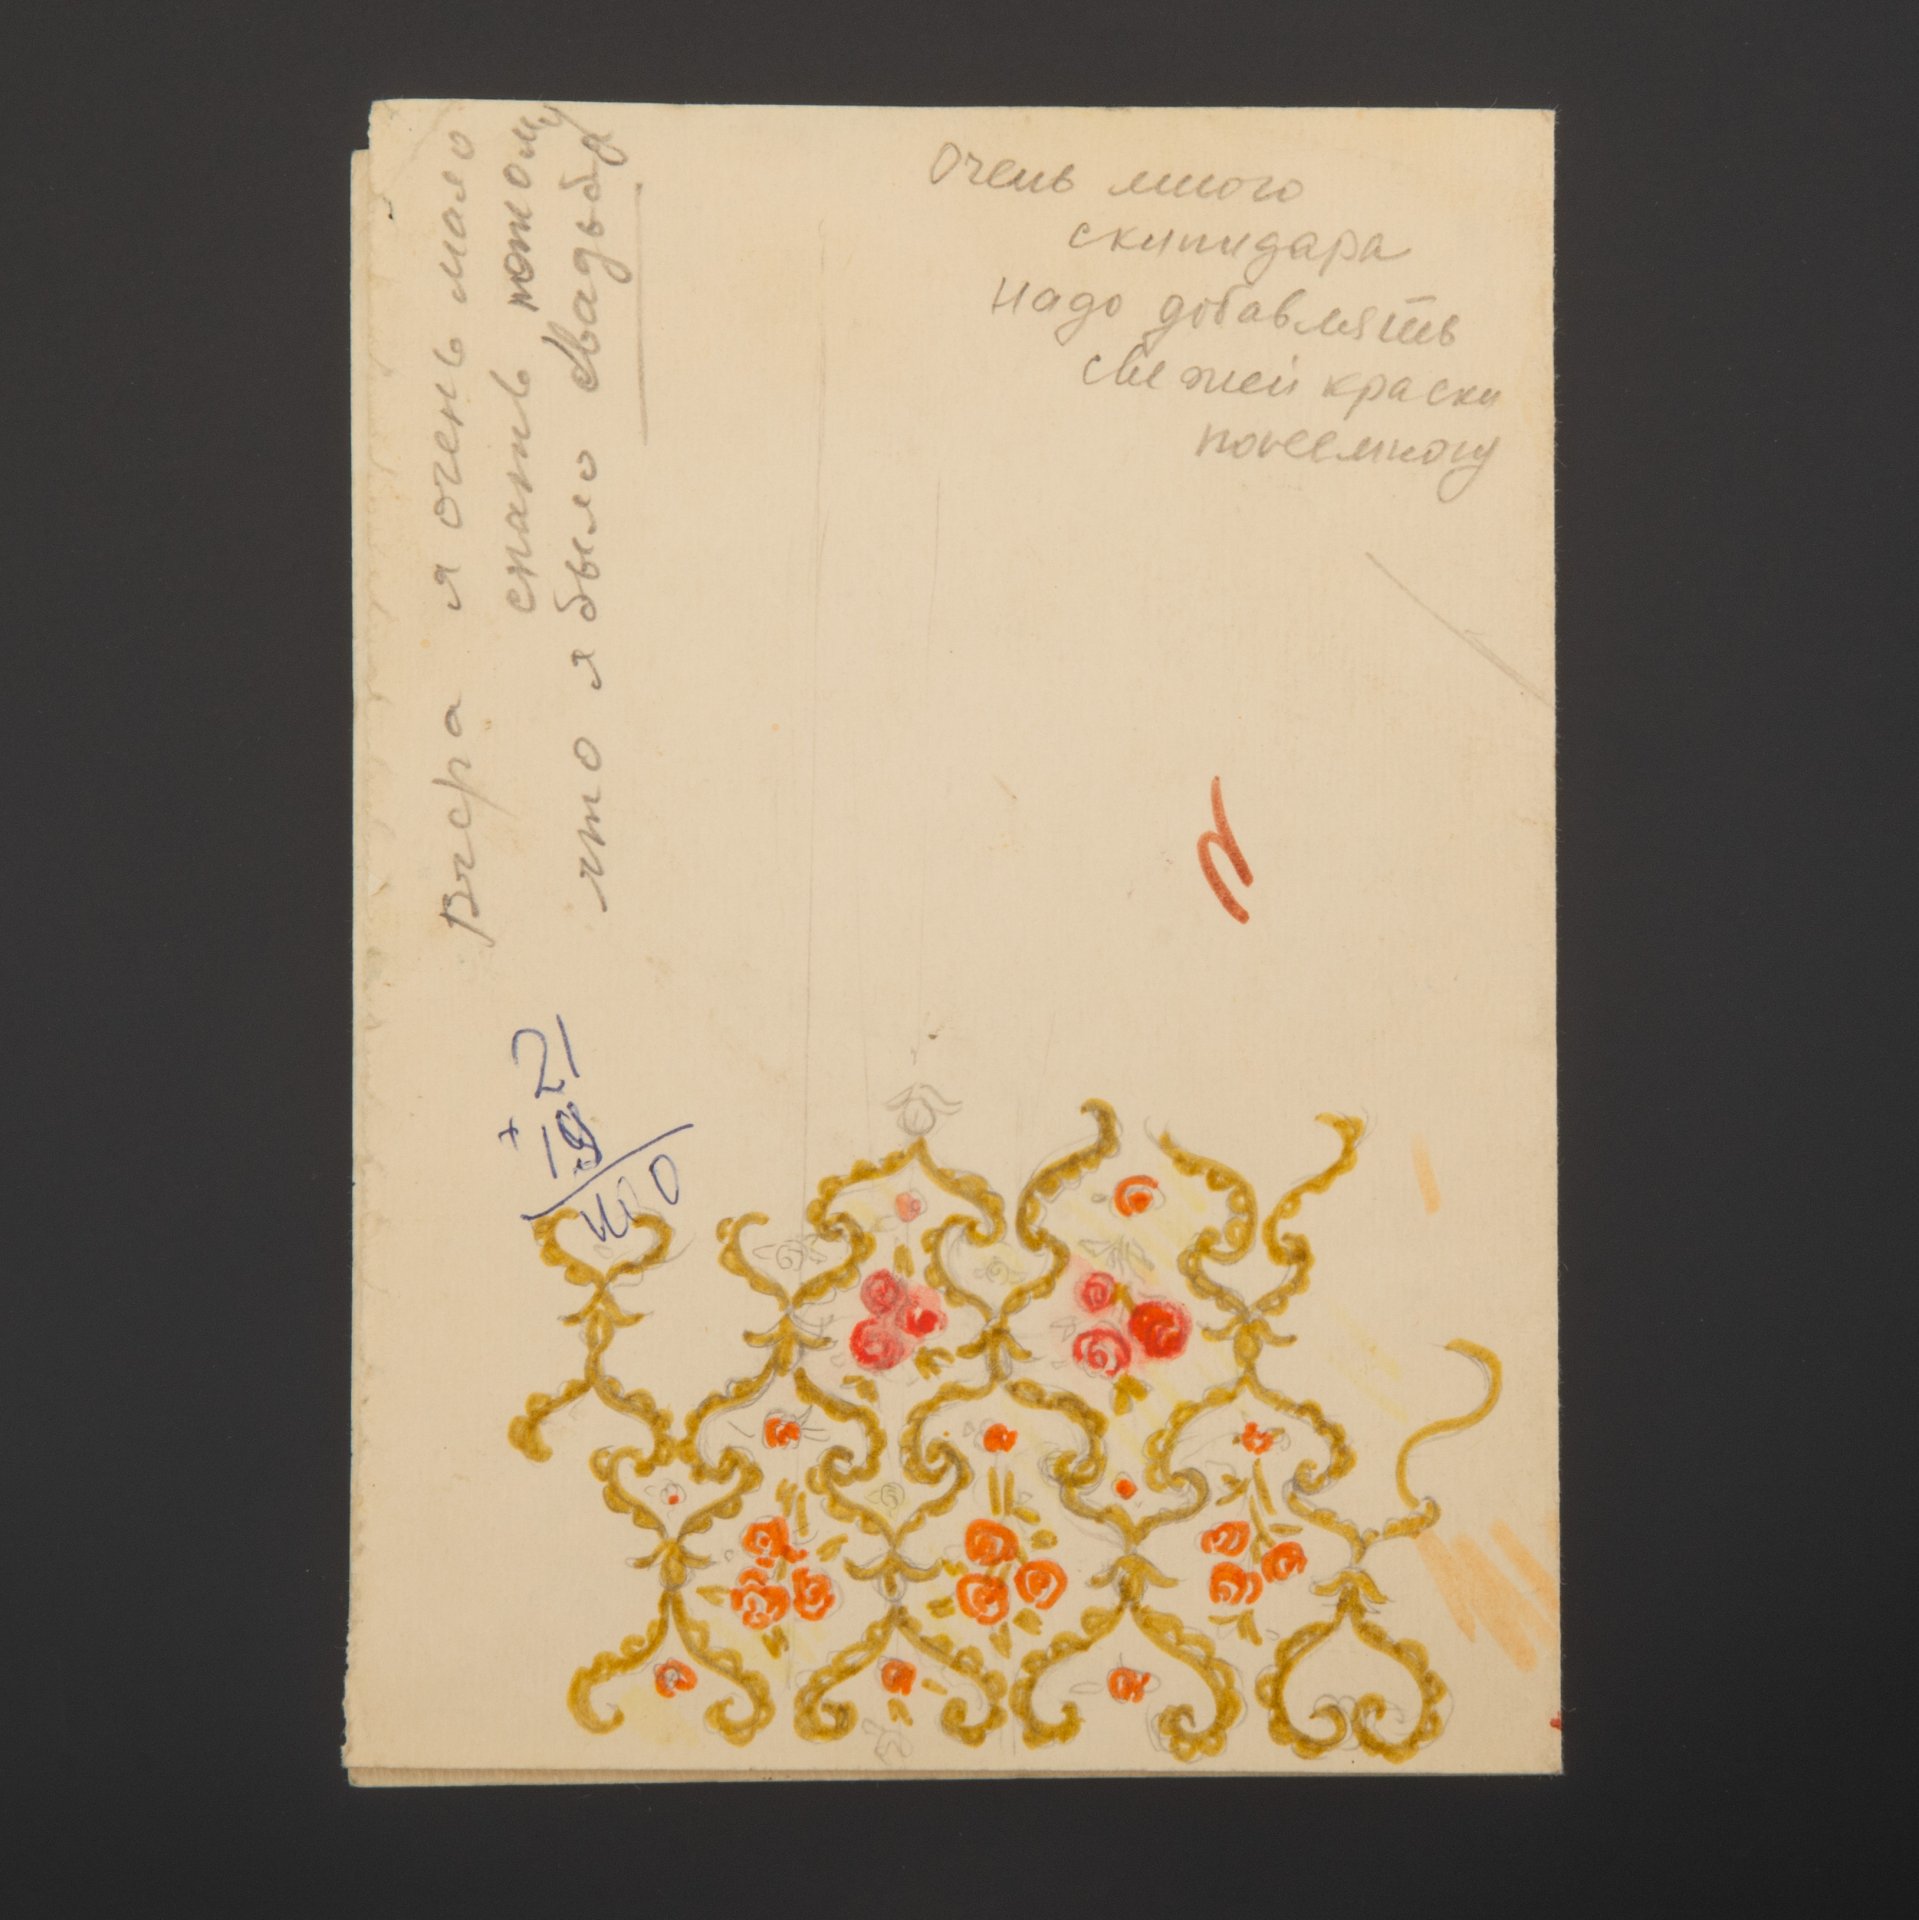 Очень много
скипидара
надо добавлять
свежей краски
понемногу
Вчера я очень мало
спать потому
что я было свадьба
21
+ 19
40